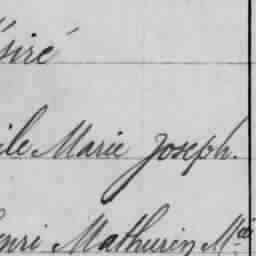 siré
ile Marie Joseph.
enri Mathurin M.ie